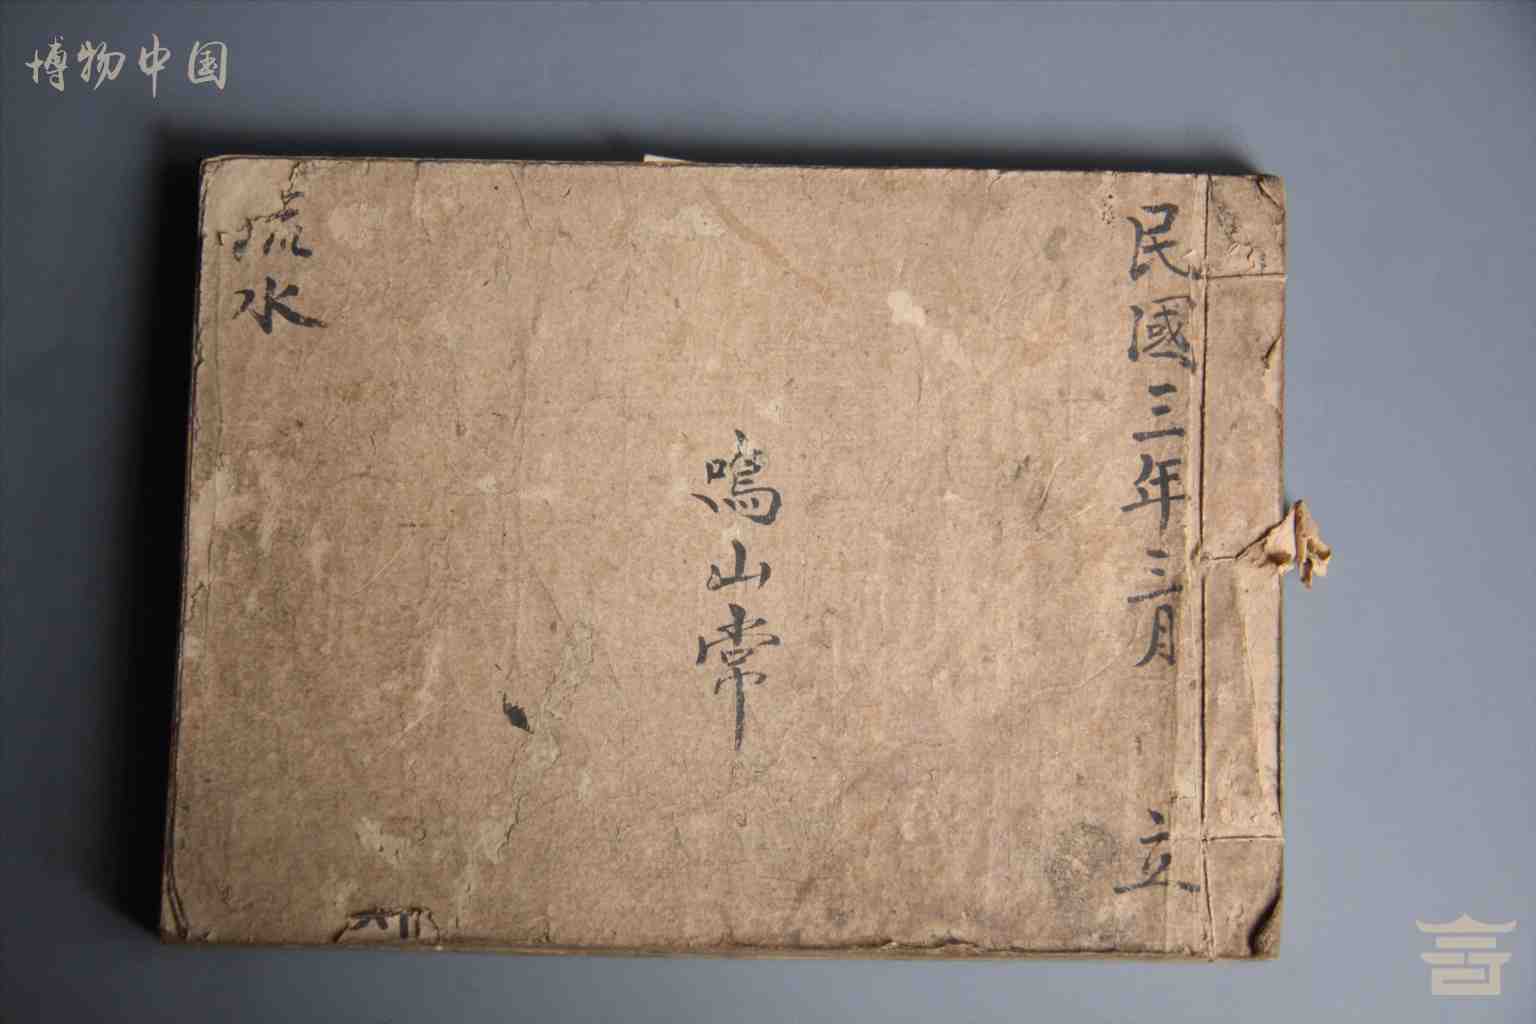 博物中国
民國三年三月 立
鳴山常
流水